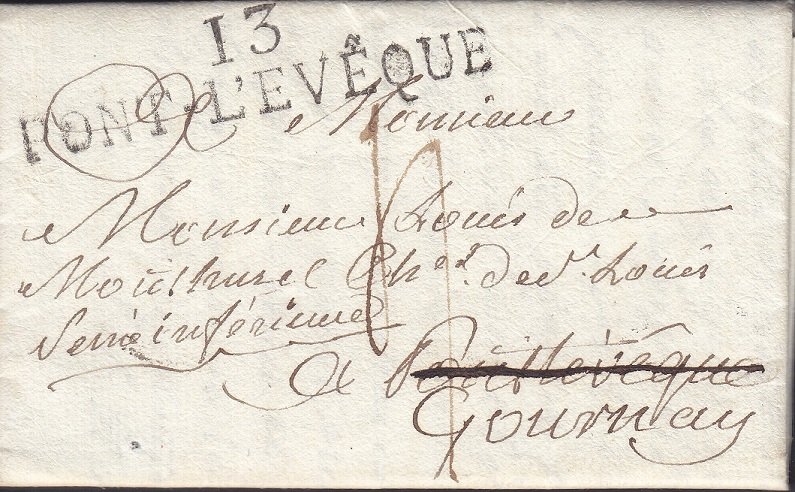 13
PONT-L'EVÊQUE
Monsieur
Monsieur Louis de
Monthurel Cher. de St. Louis
Seine inférieure
a Pontlevêque
Gournay